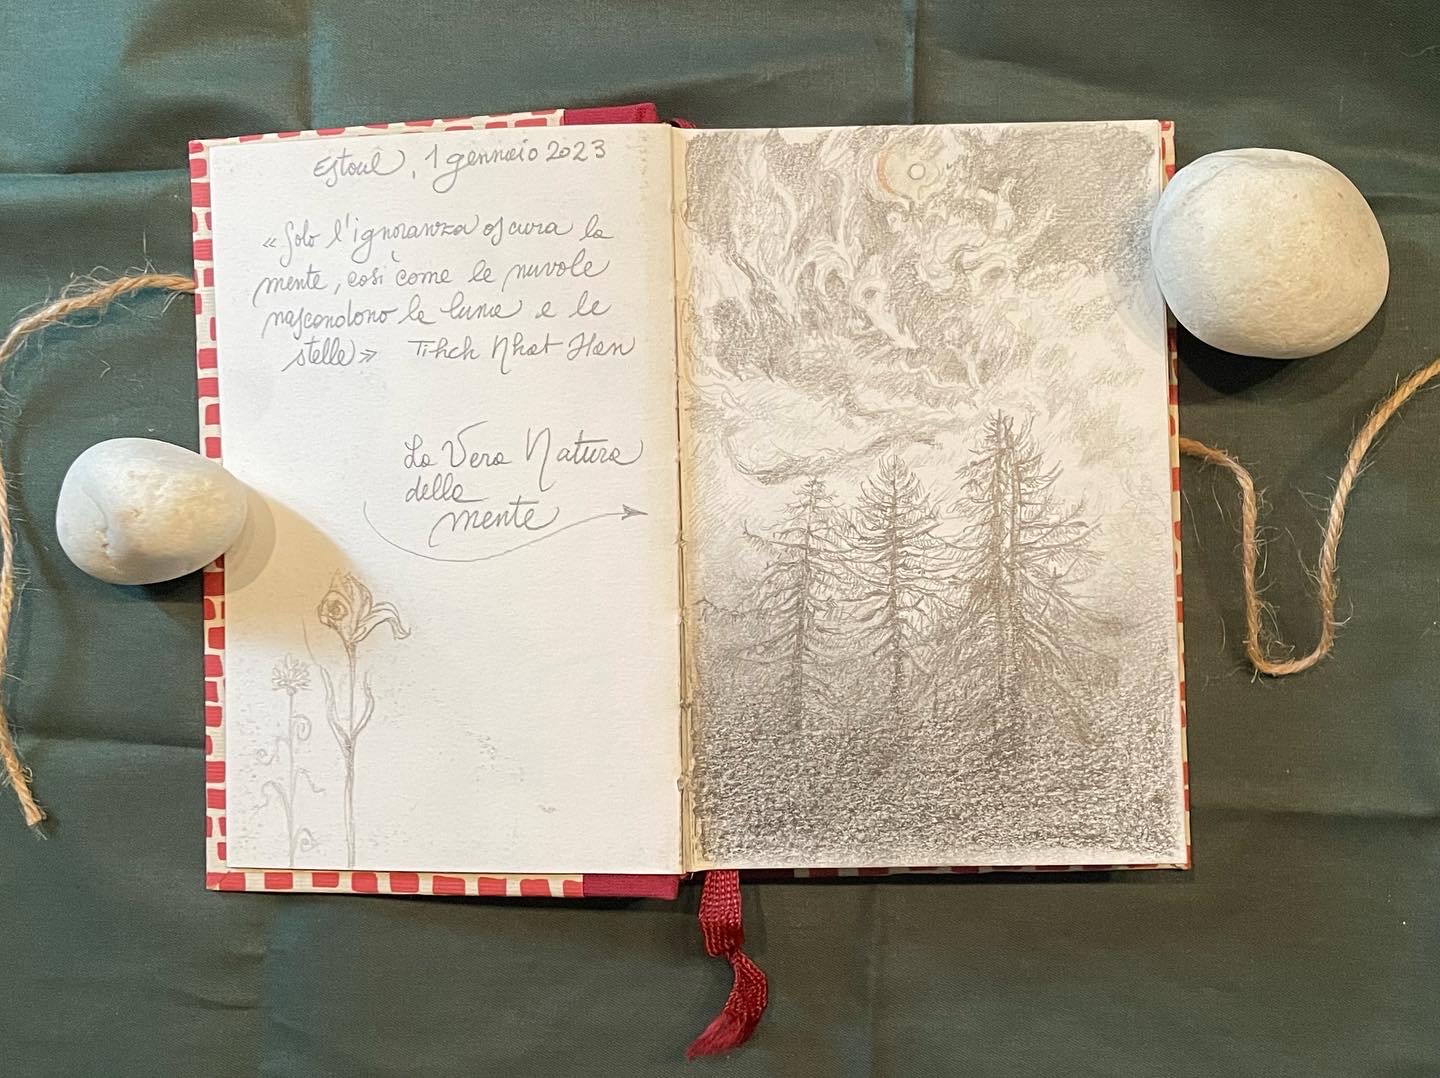 Estoul, 1 gennaio 2023
«Solo l'ignoranza oscura la
mente, così come le nuvole
nascondono la luna e le
stelle» Tihch Nhat Han
La Vera Natura
della
mente